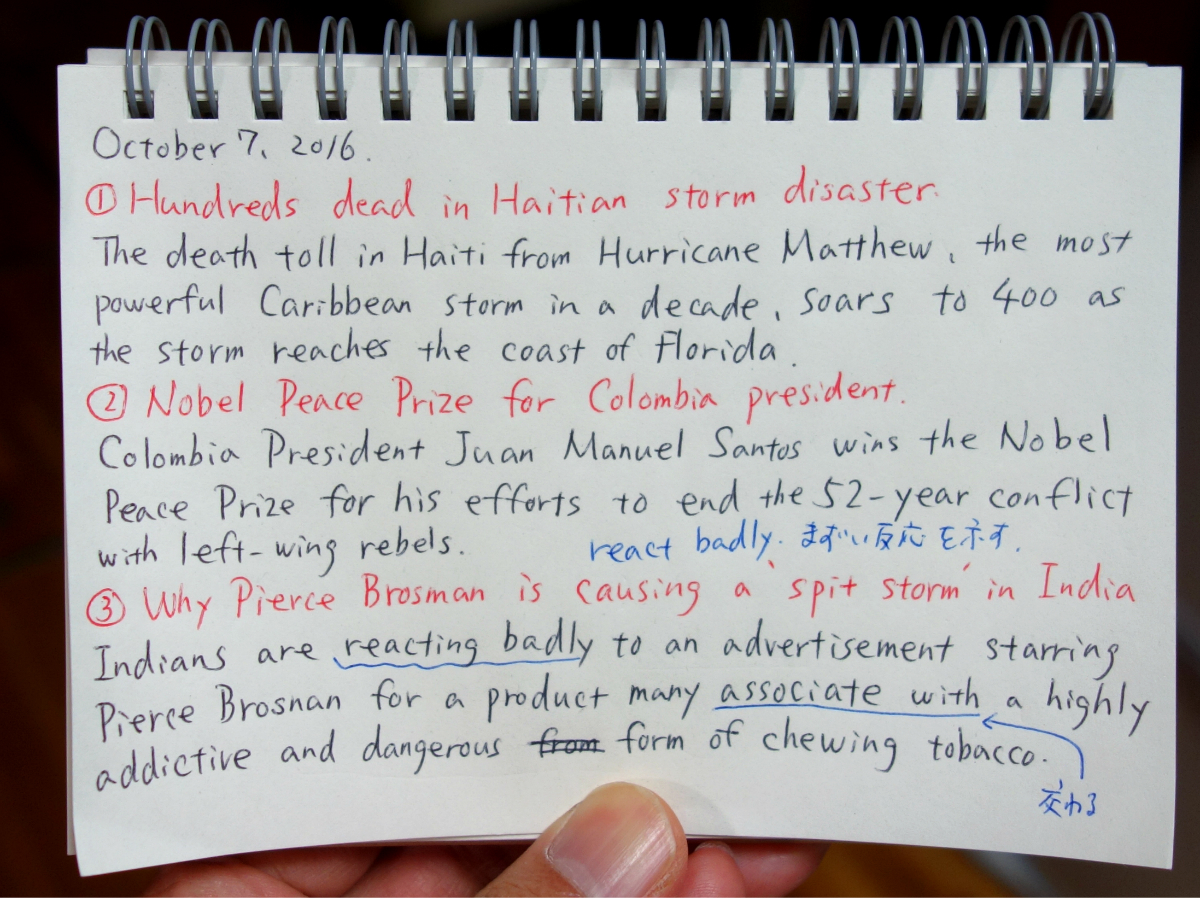 October 7, 2016.
① Hundreds dead in Haitian storm disaster.
The death toll in Haiti from Hurricane Matthew, the most
powerful Caribbean storm in a decade, soars to 400 as
the storm reaches the coast of Florida.
② Nobel Peace Prize for Colombia president.
Colombia President Juan Manuel Santos wins the Nobel
Peace Prize for his efforts to end the 52-year conflict
with left-wing rebels.
react badly. まずい反応を示す.
③ Why Pierce Brosman is causing a 'spit storm' in India
Indians are reacting badly to an advertisement starring
Pierce Brosnan for a product many associate with a highly
addictive and dangerous from form of chewing tobacco.
交わる